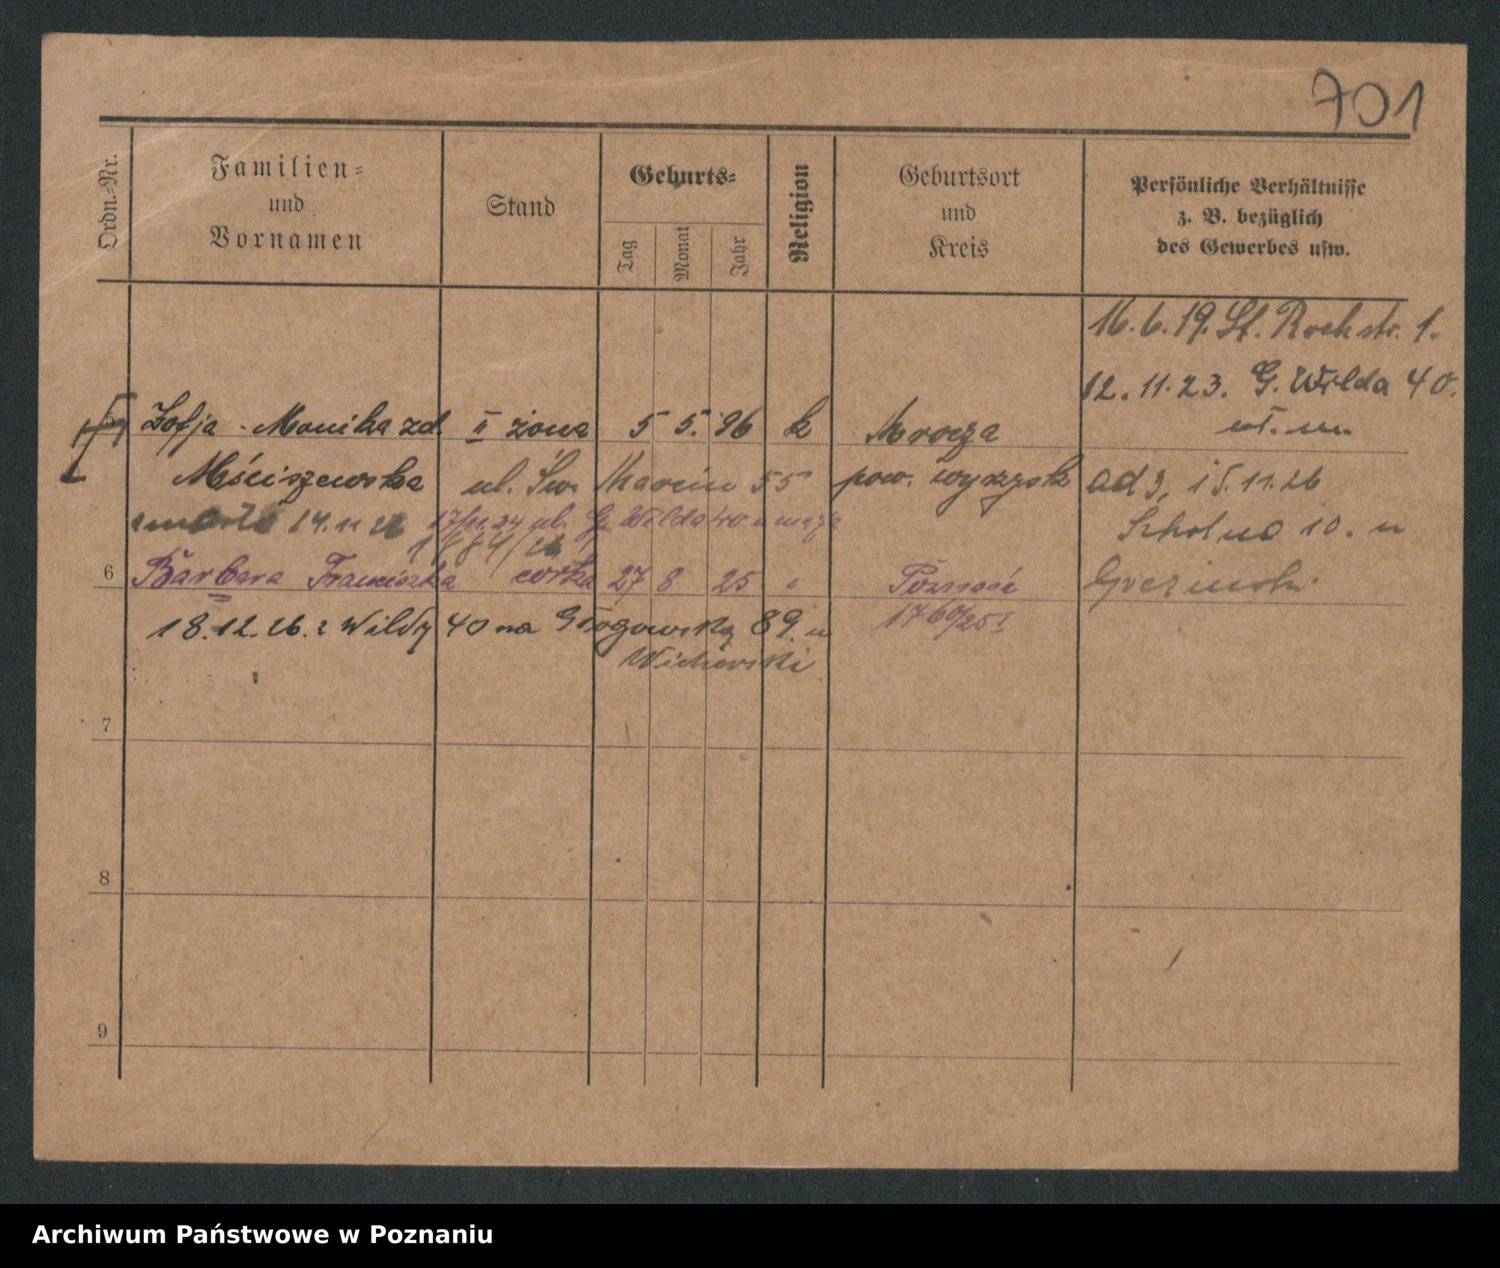 701
Ordn.-Nr.
Familien=
und
Vornamen
Stand
Geburts=
Tag
Monat
Jahr
Religion
Geburtsort
und
Kreis
Persönliche Verhältnisse
z. B. bezüglich
des Gewerbes usw.
16.6.19. St. Rochstr. 1.
12.11.23. G. Wilda 40.
wł. m.
5 Zofja - Monika zd. II żona 5 5. 96 k Mrocza
Mściszewska ul. Św. Marcin 55 pow. wyrzysk
ad 3, 15.11.26
Szkolna 10. u
zmarła 14.11 26 17/11.24 ul. G. Wilda 40 u męża
1884/26
6 Barbara Franciszka córka 27 8 25 " Poznań
1760/25 I
18.12.26. z Wildy 40 na Głogowską 89. u
Wicherski
7
8
9
Archiwum Państwowe w Poznaniu